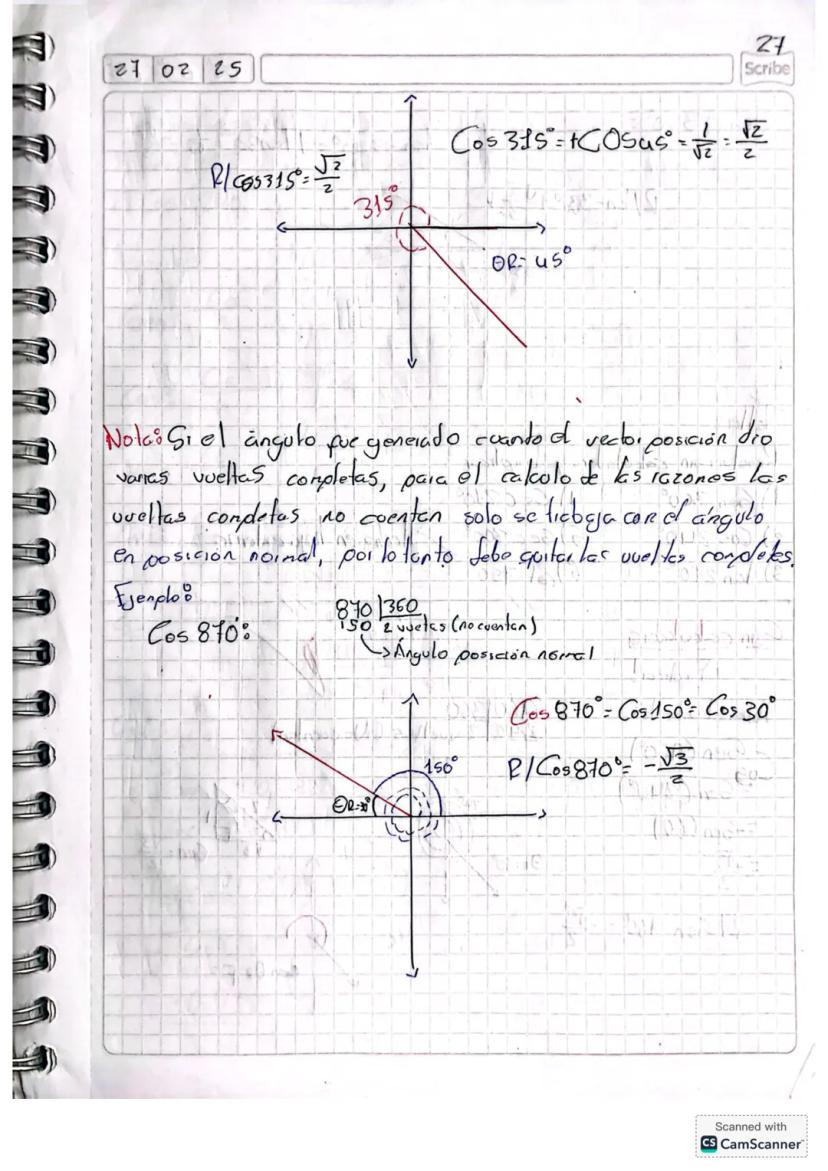 27
27 02 25
Scribe
Cos 315° = +COS45° = 1/√2 = √2/2
R/cos315° = √2/2
315°
ΘR= 45°
Nota: Si el ángulo fue generado cuando el vector posición dio
varias vueltas completas, para el calculo de las razones las
vueltas completas no cuentan solo se trabaja con el ángulo
en posición normal, por lo tanto debo quitar las vueltas completas.
Ejemplo:
Cos 870°:
870 |360
150 2 vueltas (no cuentan)
↳ Ángulo posición normal
Cos 870° = Cos 150° = Cos 30°
150°
R/Cos870° = -√3/2
ΘR=30°
Scanned with
CS CamScanner